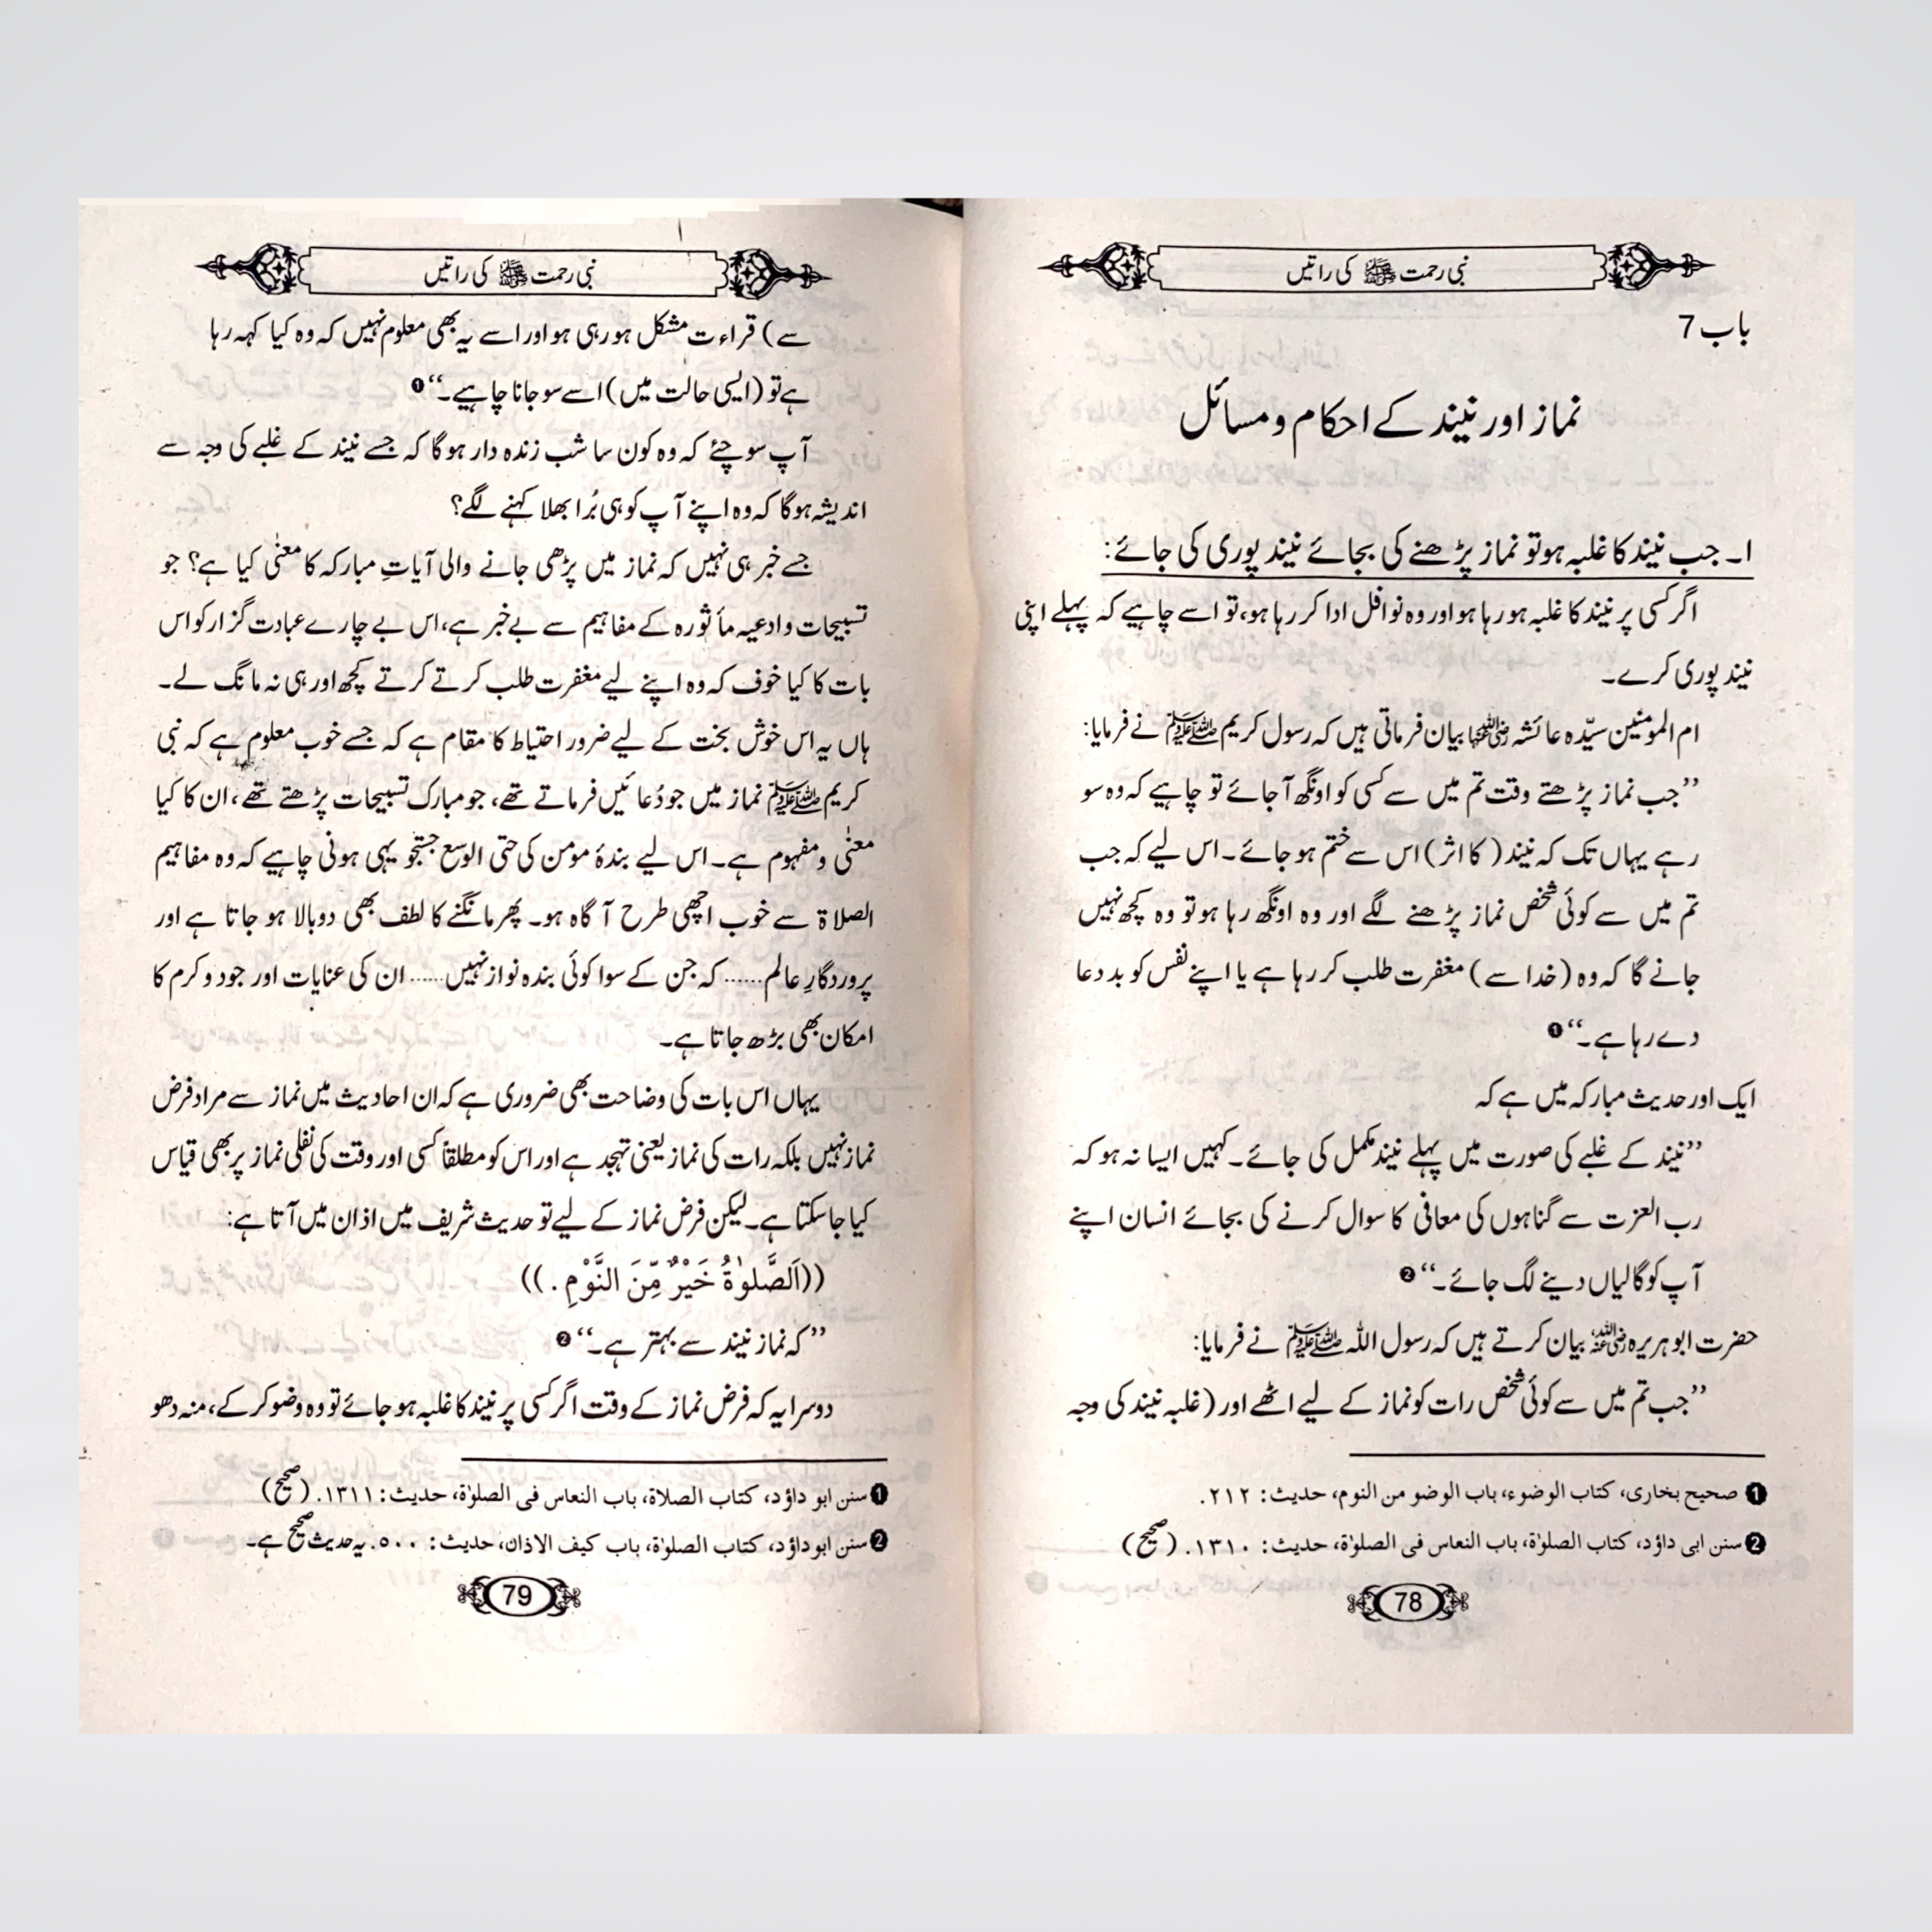 نبی رحمت ﷺ کی راتیں
باب 7
نماز اور نیند کے احکام و مسائل
۱۔ جب نیند کا غلبہ ہو تو نماز پڑھنے کی بجائے نیند پوری کی جائے:
اگر کسی پر نیند کا غلبہ ہو رہا ہو اور وہ نوافل ادا کر رہا ہو، تو اسے چاہیے کہ پہلے اپنی
نیند پوری کرے۔
ام المومنین سیّدہ عائشہ رضی اللہ عنہا بیان فرماتی ہیں کہ رسول کریم ﷺ نے فرمایا:
’’جب نماز پڑھتے وقت تم میں سے کسی کو اونگھ آ جائے تو چاہیے کہ وہ سو
رہے یہاں تک کہ نیند (کا اثر) اس سے ختم ہو جائے۔ اس لیے کہ جب
تم میں سے کوئی شخص نماز پڑھنے لگے اور وہ اونگھ رہا ہو تو وہ کچھ نہیں
جانے گا کہ وہ (خدا سے) مغفرت طلب کر رہا ہے یا اپنے نفس کو بد دعا
دے رہا ہے۔‘‘ ❶
ایک اور حدیث مبارکہ میں ہے کہ
’’نیند کے غلبے کی صورت میں پہلے نیند مکمل کی جائے۔ کہیں ایسا نہ ہو کہ
رب العزت سے گناہوں کی معافی کا سوال کرنے کی بجائے انسان اپنے
آپ کو گالیاں دینے لگ جائے۔‘‘ ❷
حضرت ابو ہریرہ رضی اللہ عنہ بیان کرتے ہیں کہ رسول اللہ ﷺ نے فرمایا:
’’جب تم میں سے کوئی شخص رات کو نماز کے لیے اٹھے اور (غلبہ نیند کی وجہ
❶ صحیح بخاری، کتاب الوضوء، باب الوضو من النوم، حدیث: ۲۱۲.
❷ سنن ابی داؤد، کتاب الصلوٰۃ، باب النعاس فی الصلوٰۃ، حدیث: ۱۳۱۰. (صحیح)
78
نبی رحمت ﷺ کی راتیں
سے) قراءت مشکل ہو رہی ہو اور اسے یہ بھی معلوم نہیں کہ وہ کیا کہہ رہا
ہے تو (ایسی حالت میں) اسے سو جانا چاہیے۔‘‘ ❶
آپ سوچئے کہ وہ کون سا شب زندہ دار ہوگا کہ جسے نیند کے غلبے کی وجہ سے
اندیشہ ہوگا کہ وہ اپنے آپ کو ہی بُرا بھلا کہنے لگے؟
جسے خبر ہی نہیں کہ نماز میں پڑھی جانے والی آیاتِ مبارکہ کا معنٰی کیا ہے؟ جو
تسبیحات و ادعیہ مأثورہ کے مفاہیم سے بے خبر ہے، اس بے چارے عبادت گزار کو اس
بات کا کیا خوف کہ وہ اپنے لیے مغفرت طلب کرتے کرتے کچھ اور ہی نہ مانگ لے۔
ہاں یہ اس خوش بخت کے لیے ضرور احتیاط کا مقام ہے کہ جسے خوب معلوم ہے کہ نبی
کریم ﷺ نماز میں جو دُعائیں فرماتے تھے، جو مبارک تسبیحات پڑھتے تھے، ان کا کیا
معنٰی و مفہوم ہے۔ اس لیے بندۂ مومن کی حتی الوسع جستجو یہی ہونی چاہیے کہ وہ مفاہیم
الصلاۃ سے خوب اچھی طرح آگاہ ہو۔ پھر مانگنے کا لطف بھی دوبالا ہو جاتا ہے اور
پروردگارِ عالم...... کہ جن کے سوا کوئی بندہ نواز نہیں...... ان کی عنایات اور جود و کرم کا
امکان بھی بڑھ جاتا ہے۔
یہاں اس بات کی وضاحت بھی ضروری ہے کہ ان احادیث میں نماز سے مراد فرض
نماز نہیں بلکہ رات کی نماز یعنی تہجد ہے اور اس کو مطلقاً کسی اور وقت کی نفلی نماز پر بھی قیاس
کیا جا سکتا ہے۔ لیکن فرض نماز کے لیے تو حدیث شریف میں اذان میں آتا ہے:
((اَلصَّلوٰةُ خَيْرٌ مِّنَ النَّوْمِ.))
’’کہ نماز نیند سے بہتر ہے۔‘‘ ❷
دوسرا یہ کہ فرض نماز کے وقت اگر کسی پر نیند کا غلبہ ہو جائے تو وہ وضو کر کے، منہ دھو
❶ سنن ابو داؤد، کتاب الصلاۃ، باب النعاس فی الصلوٰۃ، حدیث: ۱۳۱۱. (صحیح)
❷ سنن ابو داؤد، کتاب الصلوٰۃ، باب کیف الاذان، حدیث: ۵۰۰. یہ حدیث صحیح ہے۔
79